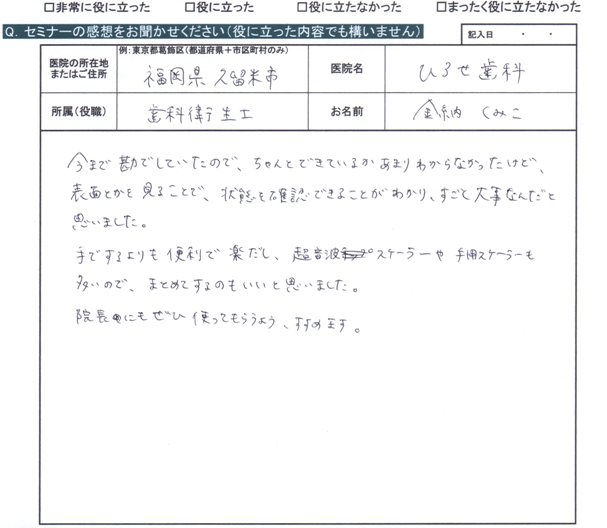 □非常に役に立った □役に立った □役に立たなかった □まったく役に立たなかった
Q. セミナーの感想をお聞かせください(役に立った内容でも構いません) 記入日 ・ ・
例:東京都葛飾区(都道府県+市区町村のみ)
医院の所在地 またはご住所 福岡県久留米市 医院名 ひろせ歯科
所属(役職) 歯科衛生士 お名前 金納 くみこ
今まで勘でしていたので、ちゃんとできているかあまりわからなかったけど、
表面とかを見ることで、状態を確認できることがわかり、すごく大事なんだと
思いました。
手でするよりも便利で楽だし、超音波スケーラーや手用スケーラーも
多いので、まとめてするのもいいと思いました。
院長にもぜひ使ってもらうよう、すすめます。